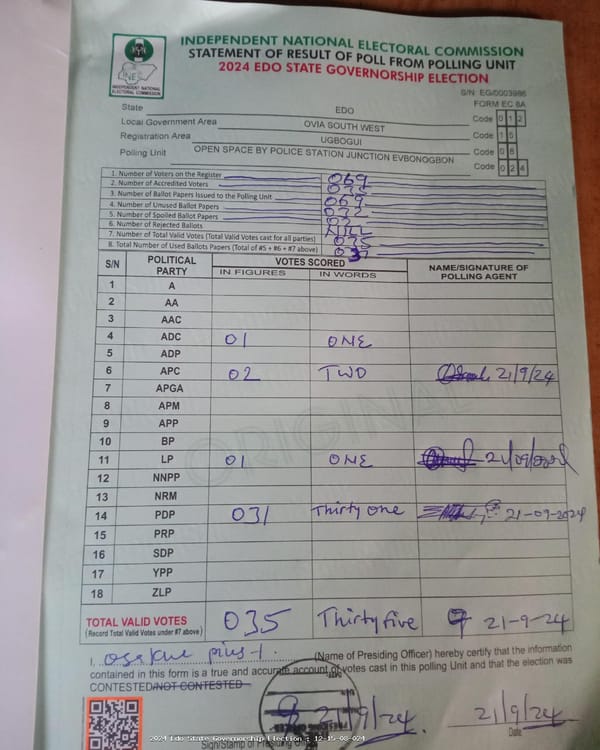 INDEPENDENT NATIONAL ELECTORAL COMMISSION
STATEMENT OF RESULT OF POLL FROM POLLING UNIT
2024 EDO STATE GOVERNORSHIP ELECTION
INEC
INDEPENDENT NATIONAL ELECTORAL COMMISSION
S/N: EG/0003986
FORM EC 8A
State EDO Code 0 1 2
Local Government Area OVIA SOUTH WEST Code 1 5
Registration Area UGBOGUI Code 0 6
Polling Unit OPEN SPACE BY POLICE STATION JUNCTION EVBONOGBON Code 0 2 4
1. Number of Voters on the Register 069
2. Number of Accredited Voters
3. Number of Ballot Papers Issued to the Polling Unit 069
4. Number of Unused Ballot Papers 032
5. Number of Spoiled Ballot Papers
6. Number of Rejected Ballots NILL
7. Number of Total Valid Votes (Total Valid Votes cast for all parties) 035
8. Total Number of Used Ballots Papers (Total of #5 + #6 + #7 above) 037
S/N POLITICAL PARTY VOTES SCORED NAME/SIGNATURE OF POLLING AGENT
IN FIGURES IN WORDS
1 A
2 AA
3 AAC
4 ADC 01 ONE
5 ADP
6 APC 02 TWO 21/9/24
7 APGA
8 APM
9 APP
10 BP
11 LP 01 ONE
12 NNPP
13 NRM
14 PDP 031 Thirty one 21-09-2024
15 PRP
16 SDP
17 YPP
18 ZLP
ORIGINAL
TOTAL VALID VOTES 035 Thirty five 21-9-24
(Record Total Valid Votes under #7 above)
I, Osakue pius .I. (Name of Presiding Officer) hereby certify that the information
contained in this form is a true and accurate account of votes cast in this polling Unit and that the election was
CONTESTED/NOT CONTESTED
21/9/24. 21/9/24
Sign/Stamp of Presiding Officer Date
2024 Edo State Governorship Election - 12-15-08-024